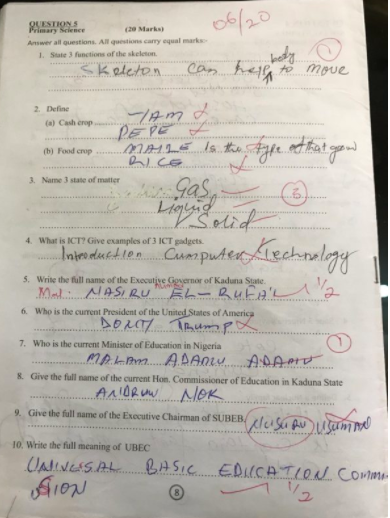 06/20
QUESTION 5
Primary Science (20 Marks)
Answer all questions. All questions carry equal marks:-
1. State 3 functions of the skeleton.
body
Skeleton can help to move
1
2. Define
YAM
(a) Cash crop
PEPE
(b) Food crop MAIZE Is the type of that grow
RICE
3. Name 3 state of matter
Gas
Liquid
Solid
3
4. What is ICT? Give examples of 3 ICT gadgets.
Introduction Cumputer Technology
5. Write the full name of the Executive Governor of Kaduna State.
Mal. NASIRU EL-RUFA'I 1/2
6. Who is the current President of the United States of America
DONCT Trump
7. Who is the current Minister of Education in Nigeria
1
MALAM ADAMU ADAMU
8. Give the full name of the current Hon. Commissioner of Education in Kaduna State
ANDRUW NOK
9. Give the full name of the Executive Chairman of SUBEB NUSURU USUMAN
10. Write the full meaning of UBEC
UNIVUSAL BASIC EDUCATION COMMI
SSION 1/2
8